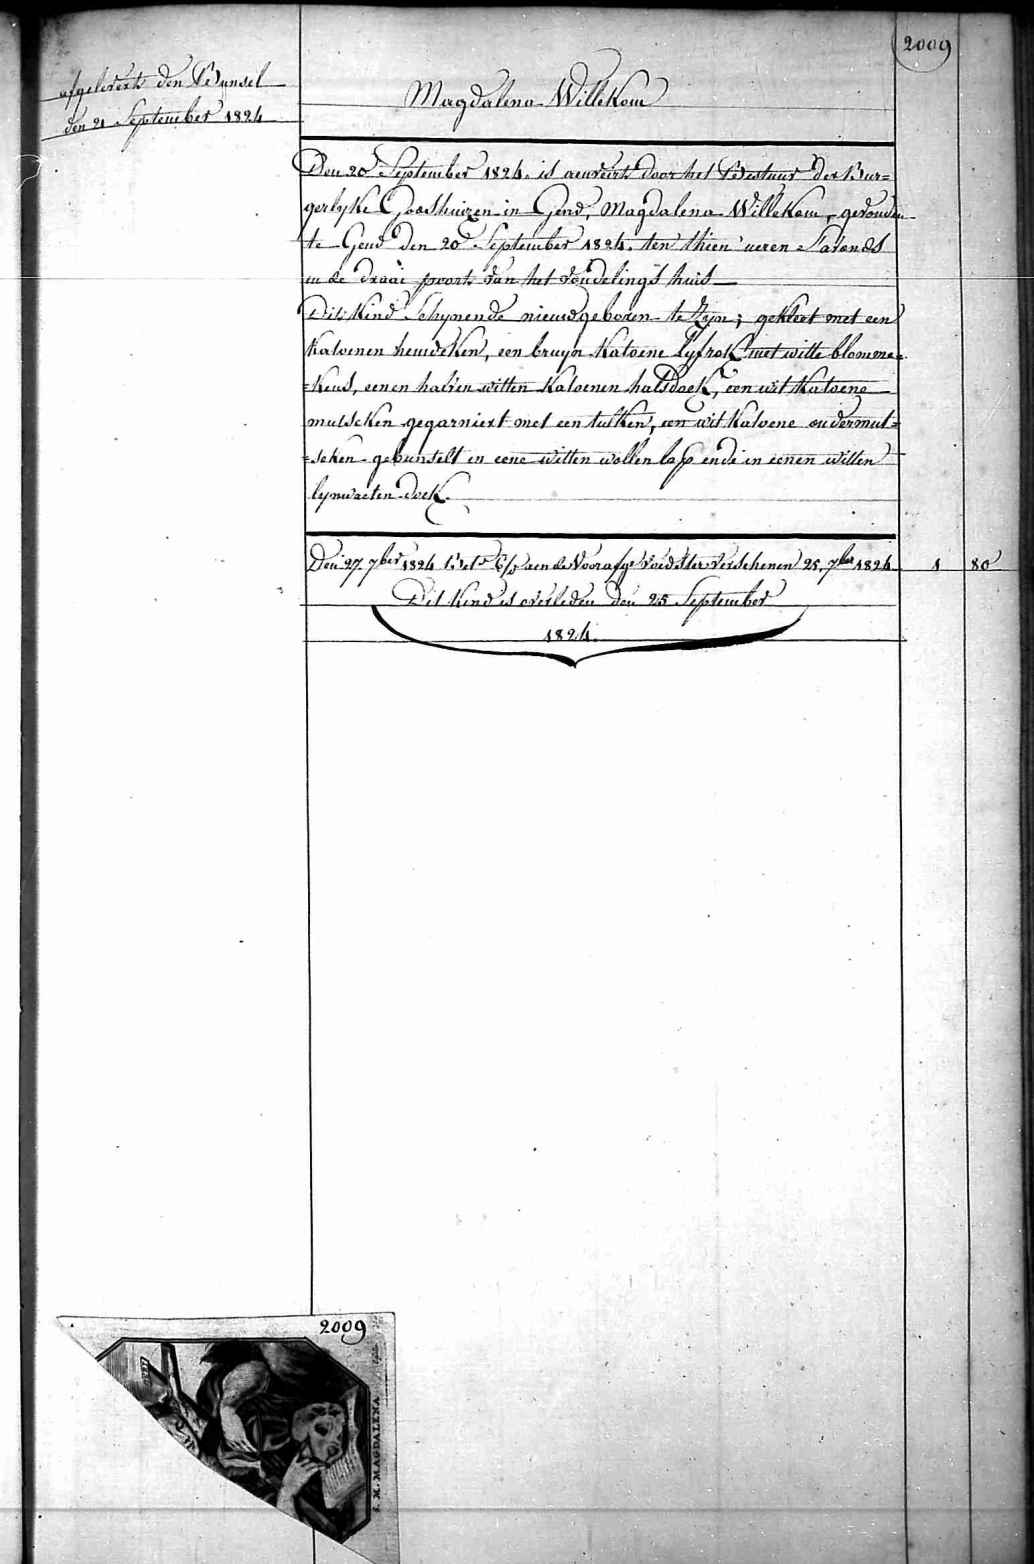 2009
afgelevert den Bunsel
den 21 September 1824
Magdalena Willekom
Den 20 September 1824 is aenveirt door het Bestuur der Bur=
gerlyke Godshuizen in Gend, Magdalena Willekom, gevonden
te Gend den 20 September 1824. ten thien ueren s'avonds
in de draai poort van het vondelings huis
Dit kind schynende nieuwgeboren te zyn; gekleet met een
katoenen hemdeken, een bruyn katoene lyfrok met witte blomme=
=kens, eenen halven witten katoenen halsdoek, een wit katoene
mutseken gegarniert met een tulken, een wit katoene ondermut=
=seken gebunselt in eene witten wollen lap ende in eenen witten
lynwaeten doek.
Den 27 7ber 1824 aen de voorafge voedster verschenen 25, 7ber 1824 1 80
Dit kind is overleden den 25 September
1824.
2009
S. M. MAGDALENA